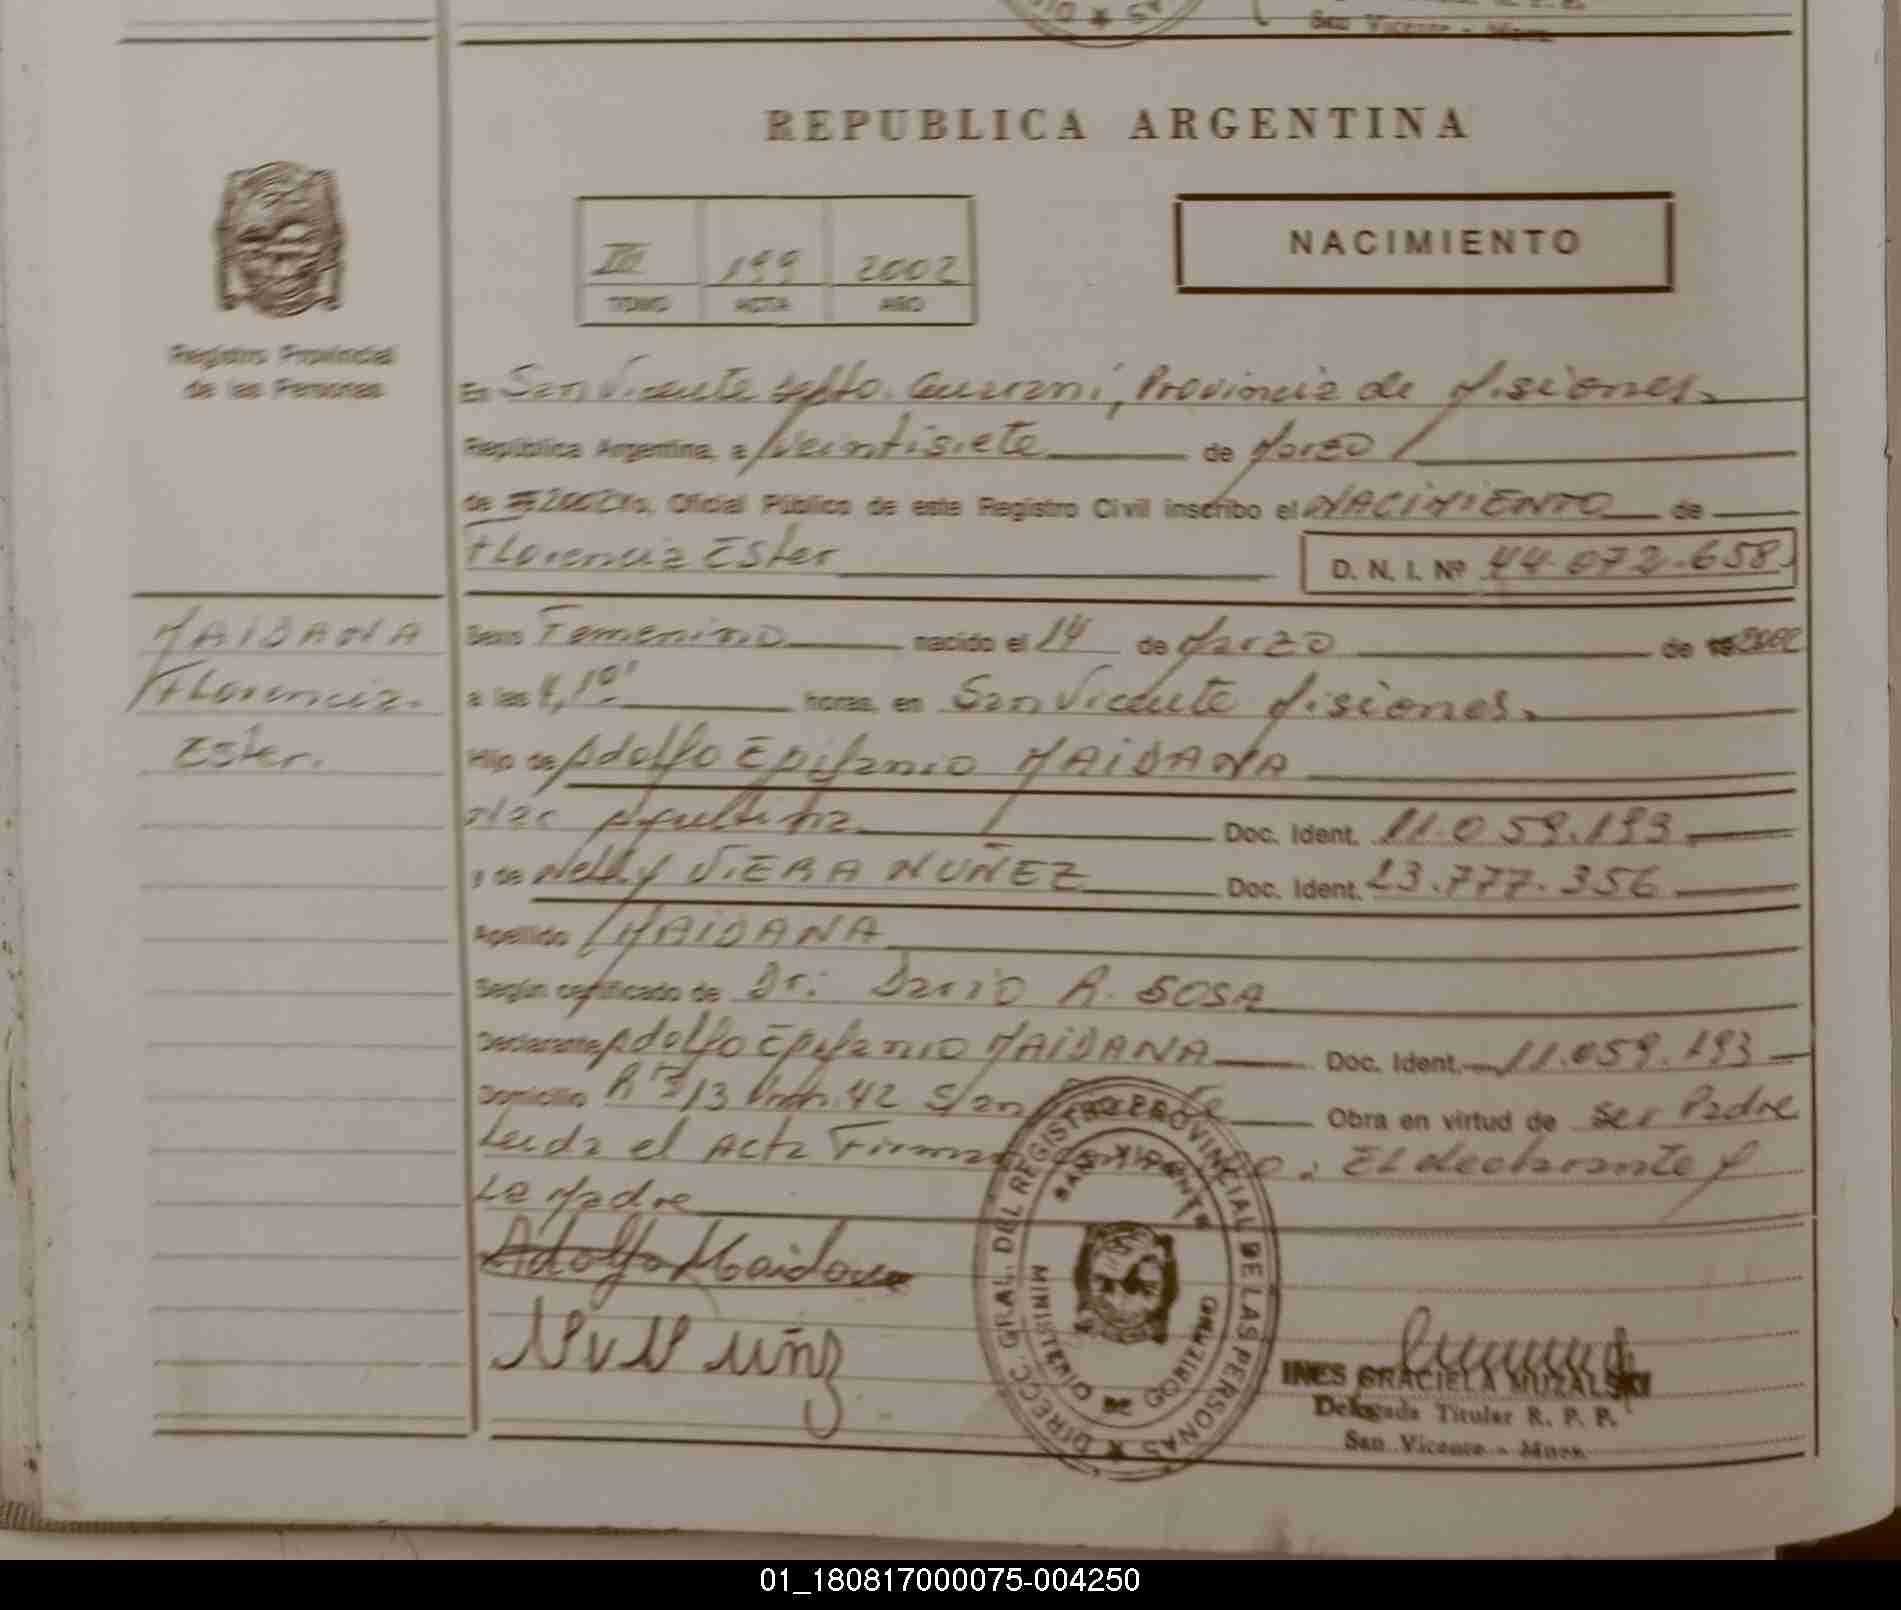 San Vicente - Mnes.
REPUBLICA ARGENTINA
NACIMIENTO
III 199 2002
TOMO ACTA AÑO
Registro Provincial
de las Personas
En San Vicente Dpto. Guaraní, Provincia de Misiones.
República Argentina, a Veintisiete de Marzo
de 2002 Yo, Oficial Público de este Registro Civil inscribo el NACIMIENTO de
Florencia Ester D. N. I. Nº 44.072.658
MAIDANA
Florencia
Ester.
Sexo Femenino nacido el 14 de Marzo de 2002
a las 4,10' horas, en San Vicente Misiones.
Hijo de Adolfo Epifanio MAIDANA
Doc. Ident. 11.059.193
y de Nelly VIERA NUÑEZ Doc. Ident. 13.777.356
Apellido MAIDANA
Según certificado de Dr: Dario A. SOSA
Declarante Adolfo Epifanio MAIDANA Doc. Ident. 11.059.193
Domicilio San Obra en virtud de ser Padre
Leida el Acta Firman El declarante y
La Madre
Adolfo Maidana
DIRECC. GRAL. DEL REGISTRO PROVINCIAL DE LAS PERSONAS
SAN VICENTE
MINISTERIO DE GOBIERNO
INES GRACIELA MUZALSKI
Delegada Titular R. P. P.
San Vicente - Mnes.
01_180817000075-004250